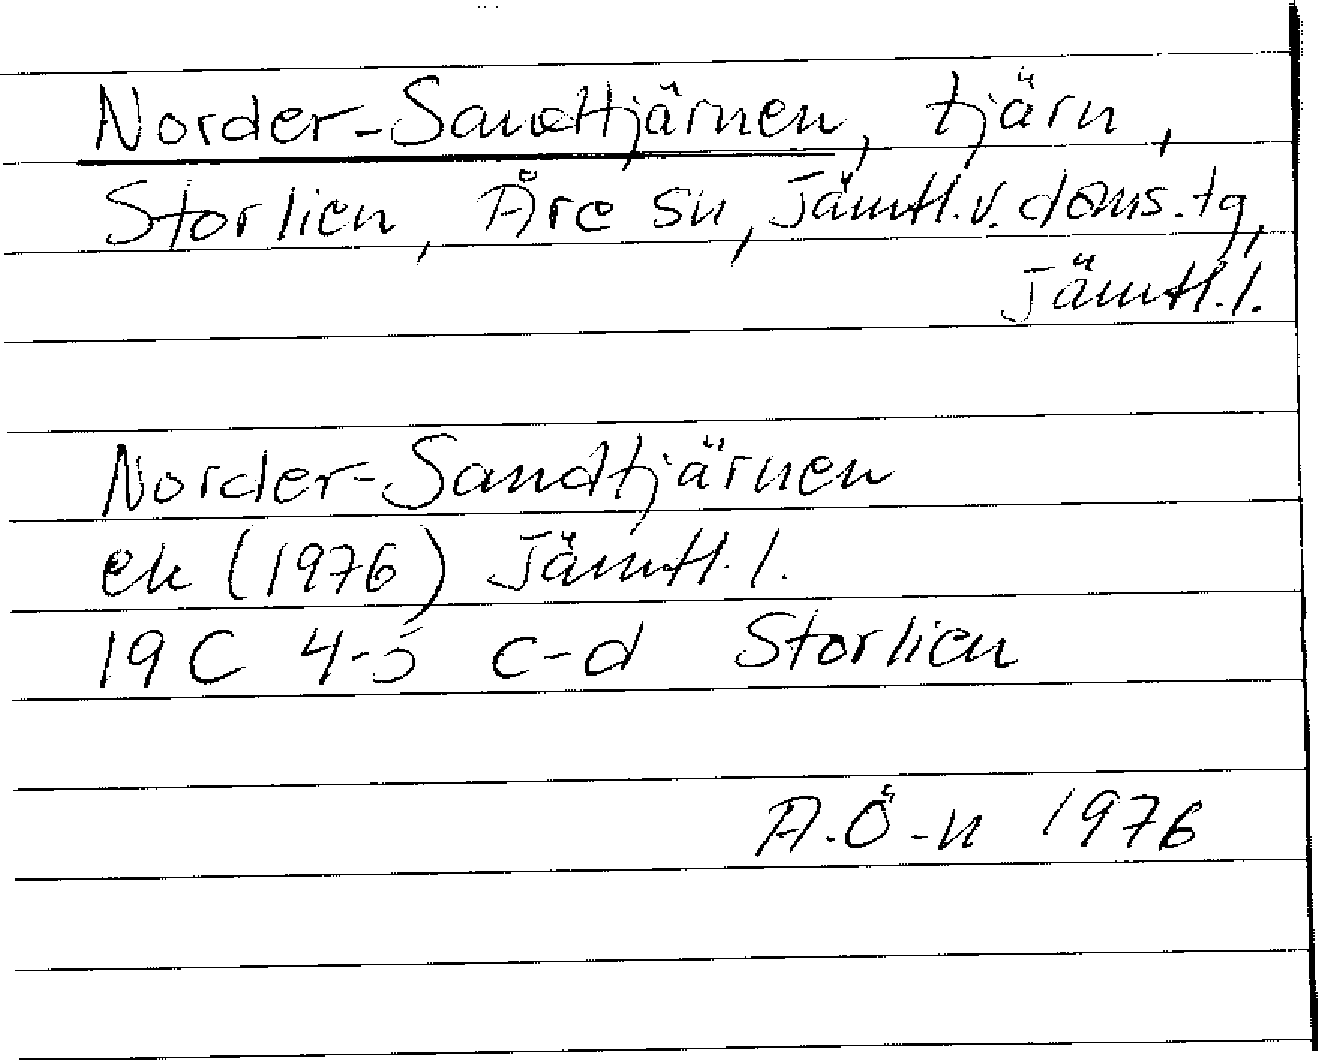 Norder-Sandtjärnen, tjärn,
Storlien, Åre sn, Jämtl.v. doms.tg,
Jämtl.l.
Norder-Sandtjärnen
ek (1976) Jämtl.l.
19 C 4-5 c-d Storlien
A.Ö-n 1976